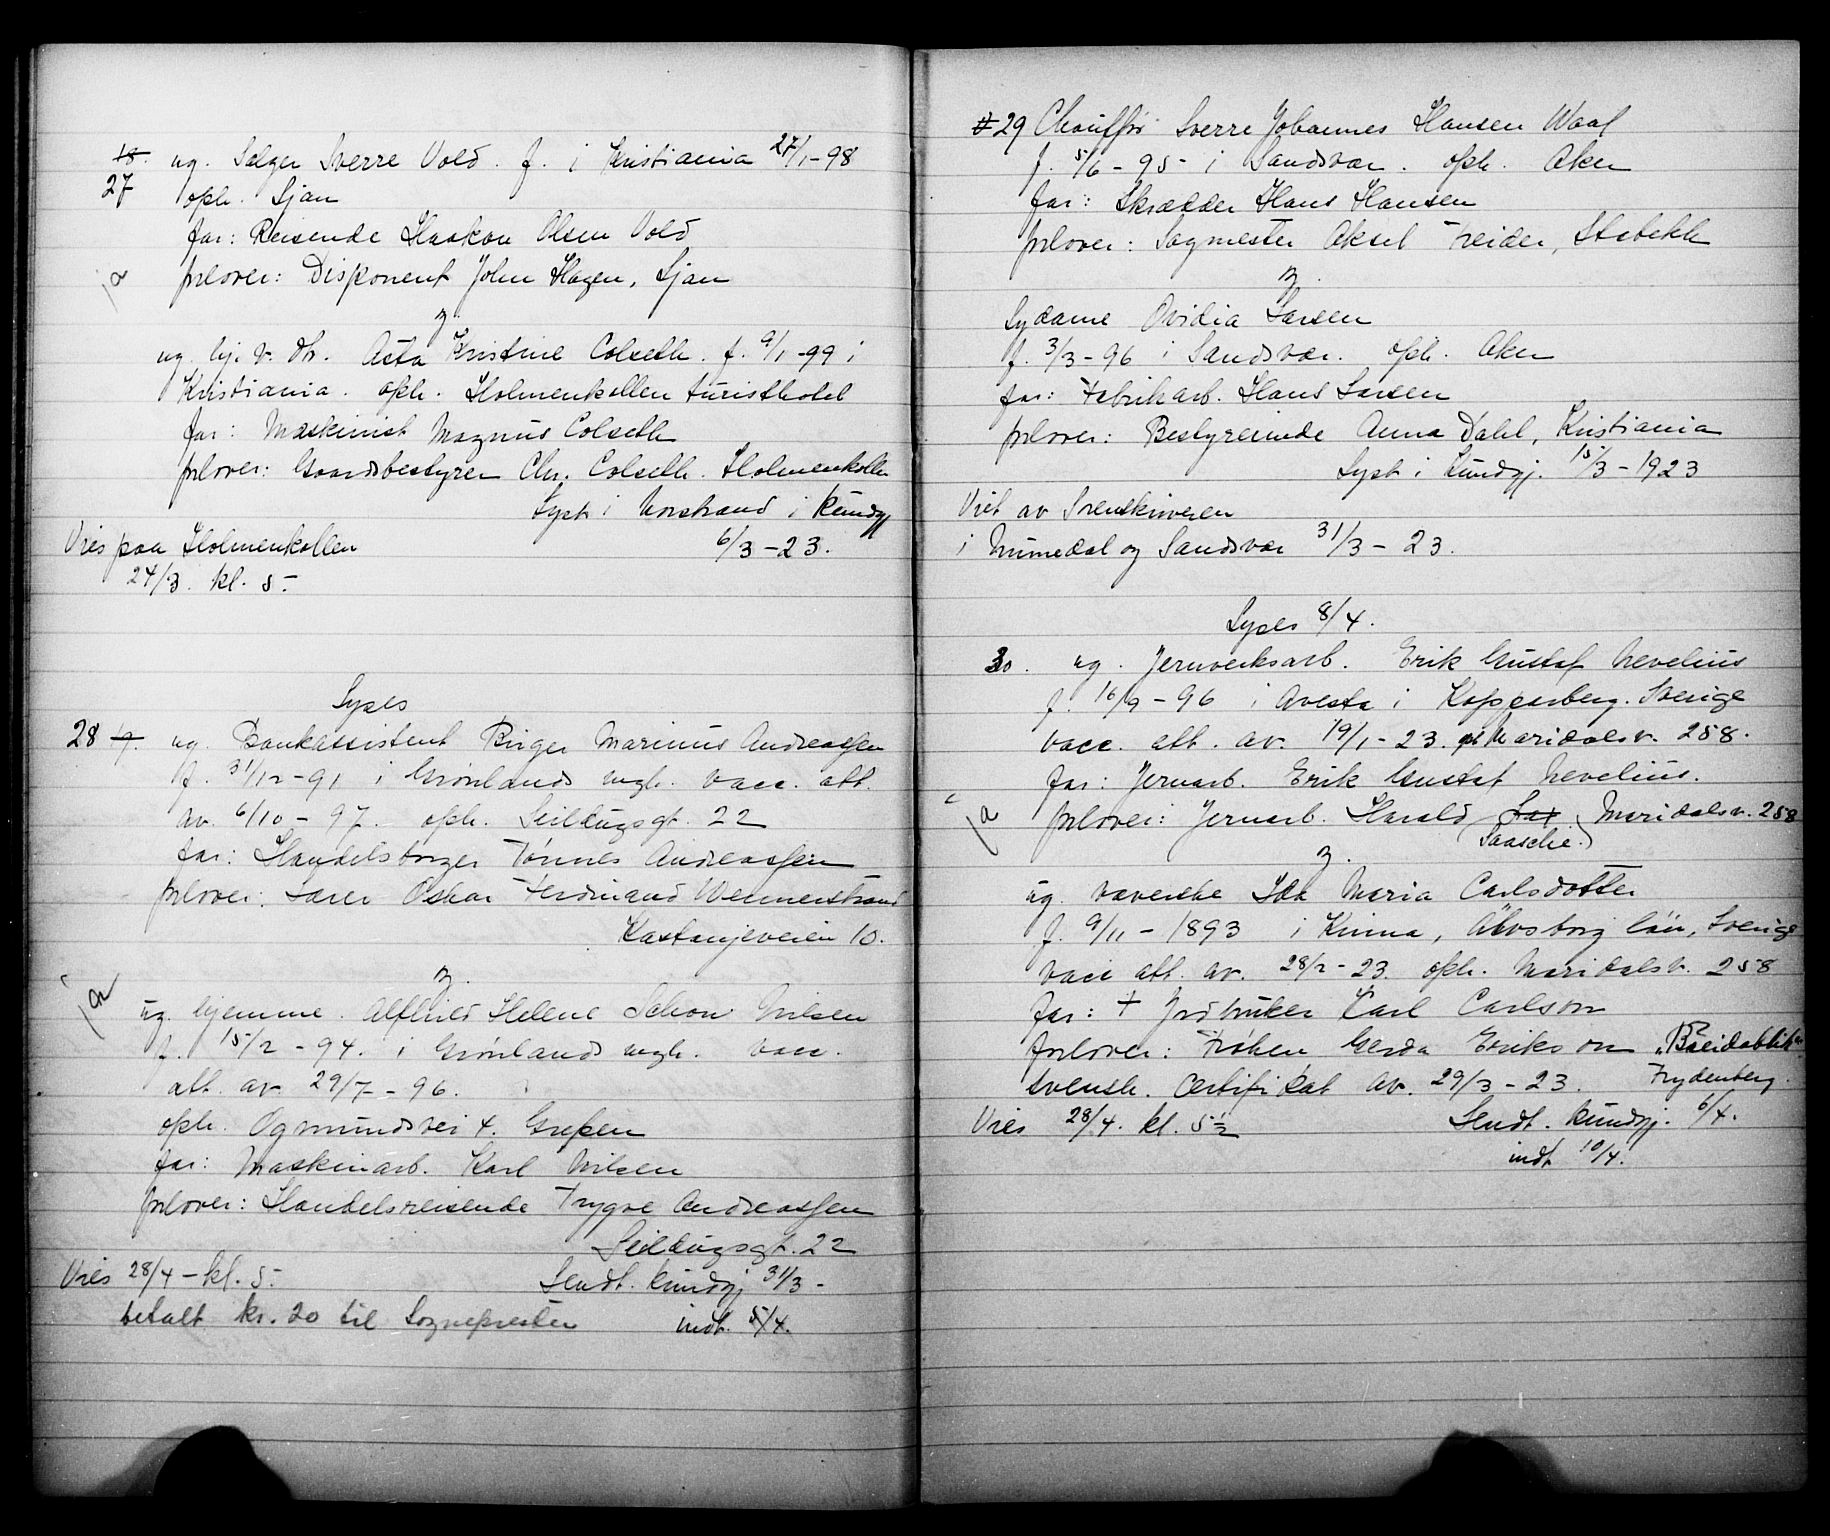 18. ug. Selger Sverre Vold. f. i Kristiania 27/1-98
27 oph. Ljan
far: Reisende Haakon Olsen Vold
ja forlover: Disponent John Hagen, Ljan
og
ug. hj. v. Asta Kristine Colseth. f. 9/1-99 i
Kristiania. oph. Holmenkollen turisthotel
far: Maskinist Magnus Colseth
forlover: Gaardsbestyrer Chr. Colseth. Holmenkollen
Lyst i Norstrand i kundgj
Vies paa Holmenkollen 6/3-23.
24/3 kl. 5-
Lyses
28 ug. Bankassistent Birger Marinius Andreassen
f. 31/12-91 i Grønlands mgh. vacc. att.
av. 6/10-97. oph. Seildugsgt. 22
far: Handelsborger Tønnes Andreassen
forlover: Lærer Oskar Ferdinand Wennerstrand
Kastanjeveien 10.
og
ja
ug. hjemme. Alfhild Helene Schou Nilsen
f. 15/2-94. i Grønlands mgh. vacc.
att. av 29/7-96.
oph. Ogmundsvei 4. Grefsen
far: Maskinarb. Karl Nilsen
forlover: Handelsreisende Trygve Andreassen
Seildugsgt. 22
Vies 28/4-kl. 5- Sendt. kundgj 31/3-
betalt kr. 20 til Sognepresten indt. 5/4.
29 Chauffør Sverre Johannes Hansen Waal
f. 5/6-95- i Sandsvær. oph. Aker
far: Skrædder Hans Hansen
forlover: Sagmester Aksel Freider, Stabekk
og
Sydame Ovidia Larsen
f. 3/3-96 i Sandsvær. oph. Aker
far: Fabrikarb. Hans Larsen
forlover: Bestyrerinde Anna Dahl, Kristiania
Lyst i Kundgj. 15/3-1923
Viet av Sorenskriveren
i Numedal og Sandsvær 31/3-23.
Lyses 8/4.
30. ug. Jernverksarb. Erik Gustaf Nevelius
f. 16/9-96 i Avesta i Kopparberg. Sverige
vacc. att. av. 19/1-23. oph Maridalsv. 258.
far: Jernarb. Erik Gustaf Nevelius.
ja forlover: Jernarb. Harald Sax Maridalsv. 258
Saasche.
og
ug. væverske Ida Maria Carlsdotter
f. 9/11-1893 i Kinna, Älvsborg län, Sverige
vacc att. av. 28/2-23 oph. Maridalsv. 258
far: + Jordbruker Karl Carlson
forlover: Frøken Gerda Erikson "Breidablik"
svensk. Certifikat av. 29/3-23. Frydenberg.
Vies 28/4. kl. 5 1/2 Sendt. kundgj. 6/4.
indt 10/4.